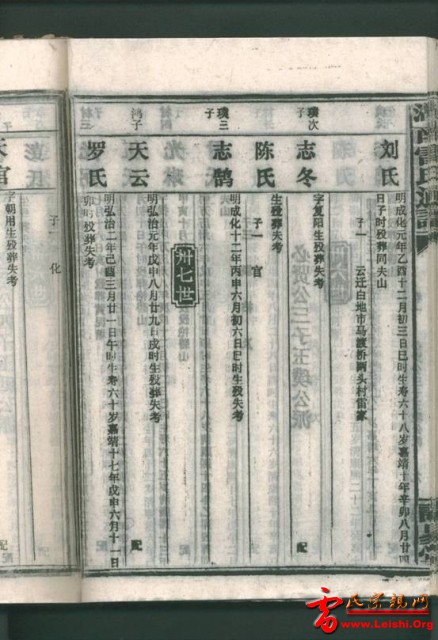 湖南雷氏通譜
刘氏
明成化元年乙酉十二月初三日巳时生寿六十八岁嘉靖十年辛卯八月廿四
日子时殁葬同夫山
子一 云迁白地市马渡桥两头村雷家
璞次子
志冬
字复阳生殁葬失考 配
陈氏
生殁葬失考
子一 官
璞三子
志鹄
明成化十二年丙申六月初六日巳时生殁失考
卅七世
鸿子
天云
明弘治元年戊申八月廿九日戌时生殁葬失考 配
罗氏
明弘治二年己酉三月廿一日午时生寿六十岁嘉靖十七年戊申六月十一日
卯时殁葬失考
子一 化
天官
字朝用生殁葬失考 配
雷氏宗亲网
www.Leishi.Org